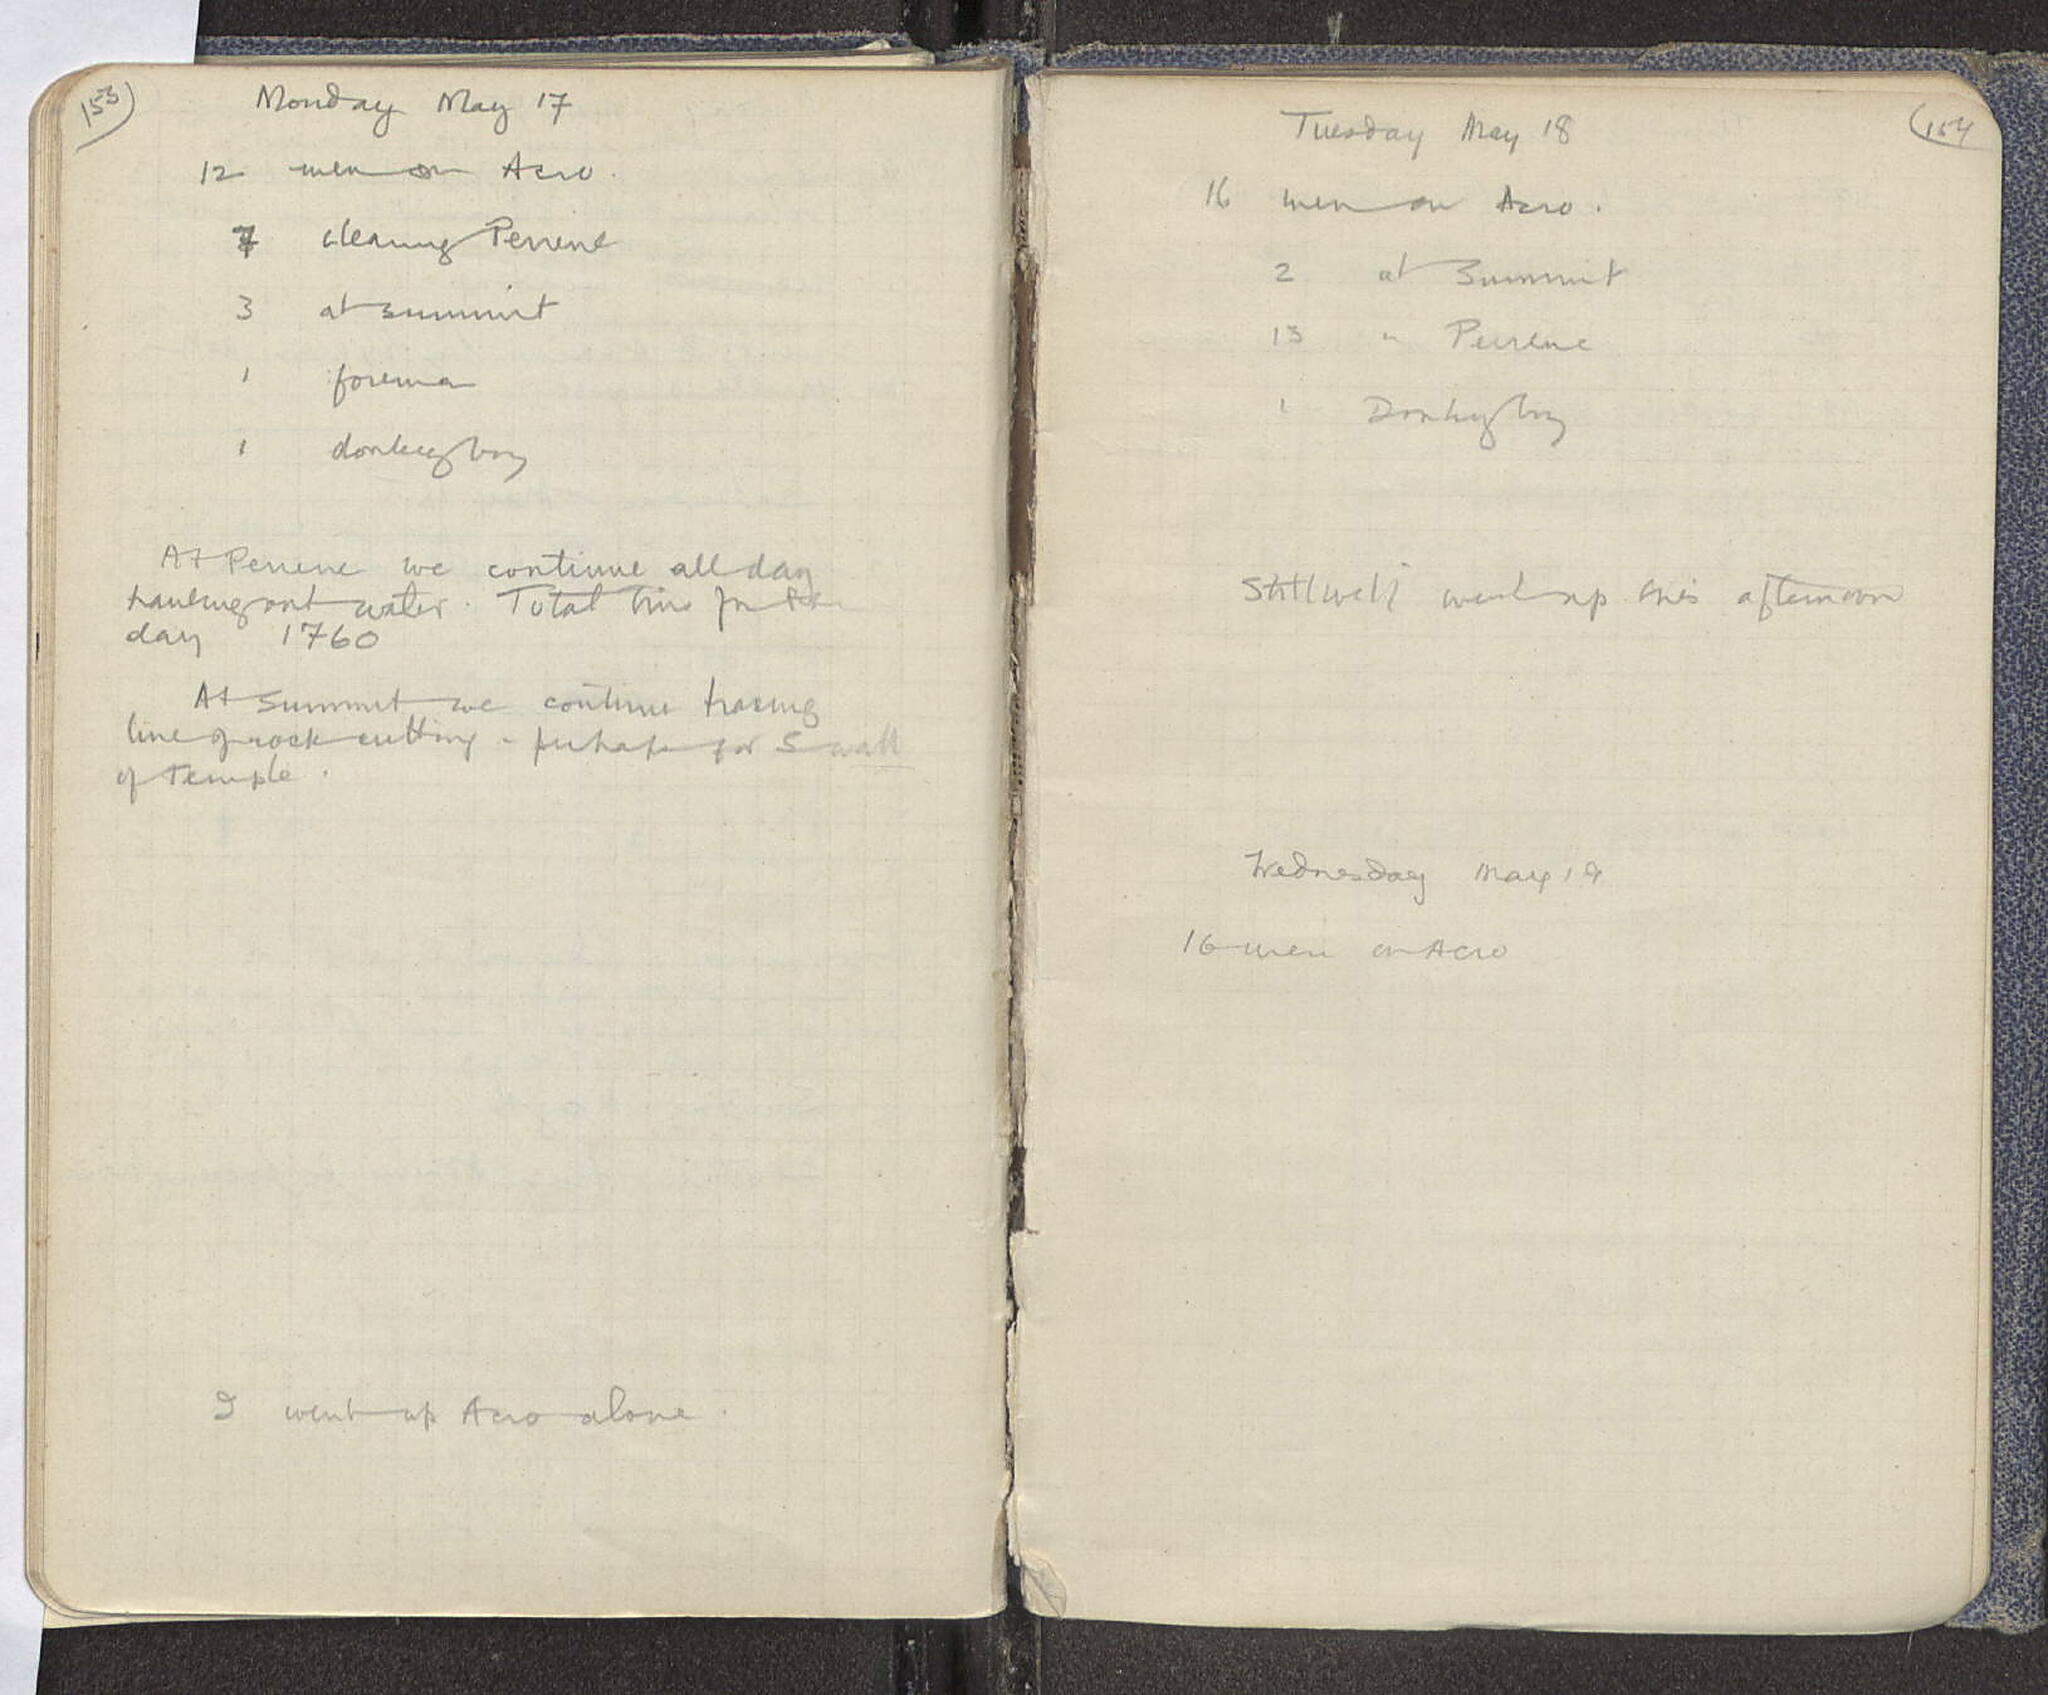 153
Monday May 17
12 men on Acro.
7 cleaning Peirene
3 at summit
1 foreman
1 donkey boy
At Peirene we continue all day
hauling out water. Total tins for the
day 1760
At summit we continue tracing
line of rock cutting - perhaps for S wall
of Temple.
I went up Acro alone.
154
Tuesday May 18
16 men on Acro.
2 at Summit
13 " Peirene
1 Donkey boy
Stillwell went up this afternoon
Wednesday May 19
16 men on Acro